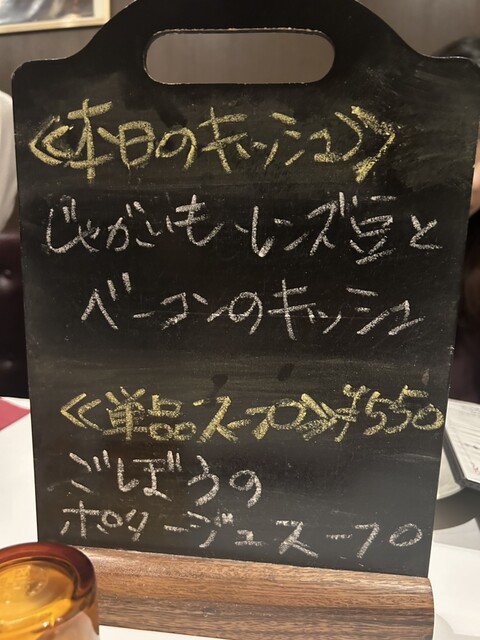 ≪本日のキッシュ≫
じゃがいも、レンズ豆と
ベーコンのキッシュ
≪単品スープ≫¥550
ごぼうの
ポタージュスープ